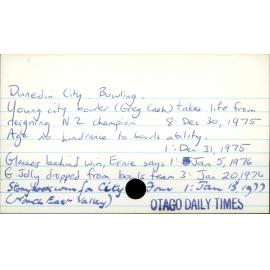 Dunedin City. Bowling.
Young city bowler (Greg Cash) takes life from
reigning NZ champion 8: Dec 30, 1975
Age no hindrance to bowls ability.
1: Dec 31, 1975
Glasses behind win, Ernie says 1: Jan 5, 1976
G. Jolly dropped from bowls team 3: Jan 20, 1976
Storybook win for City Four 1: Jan 13 1977
(North East Valley)
OTAGO DAILY TIMES